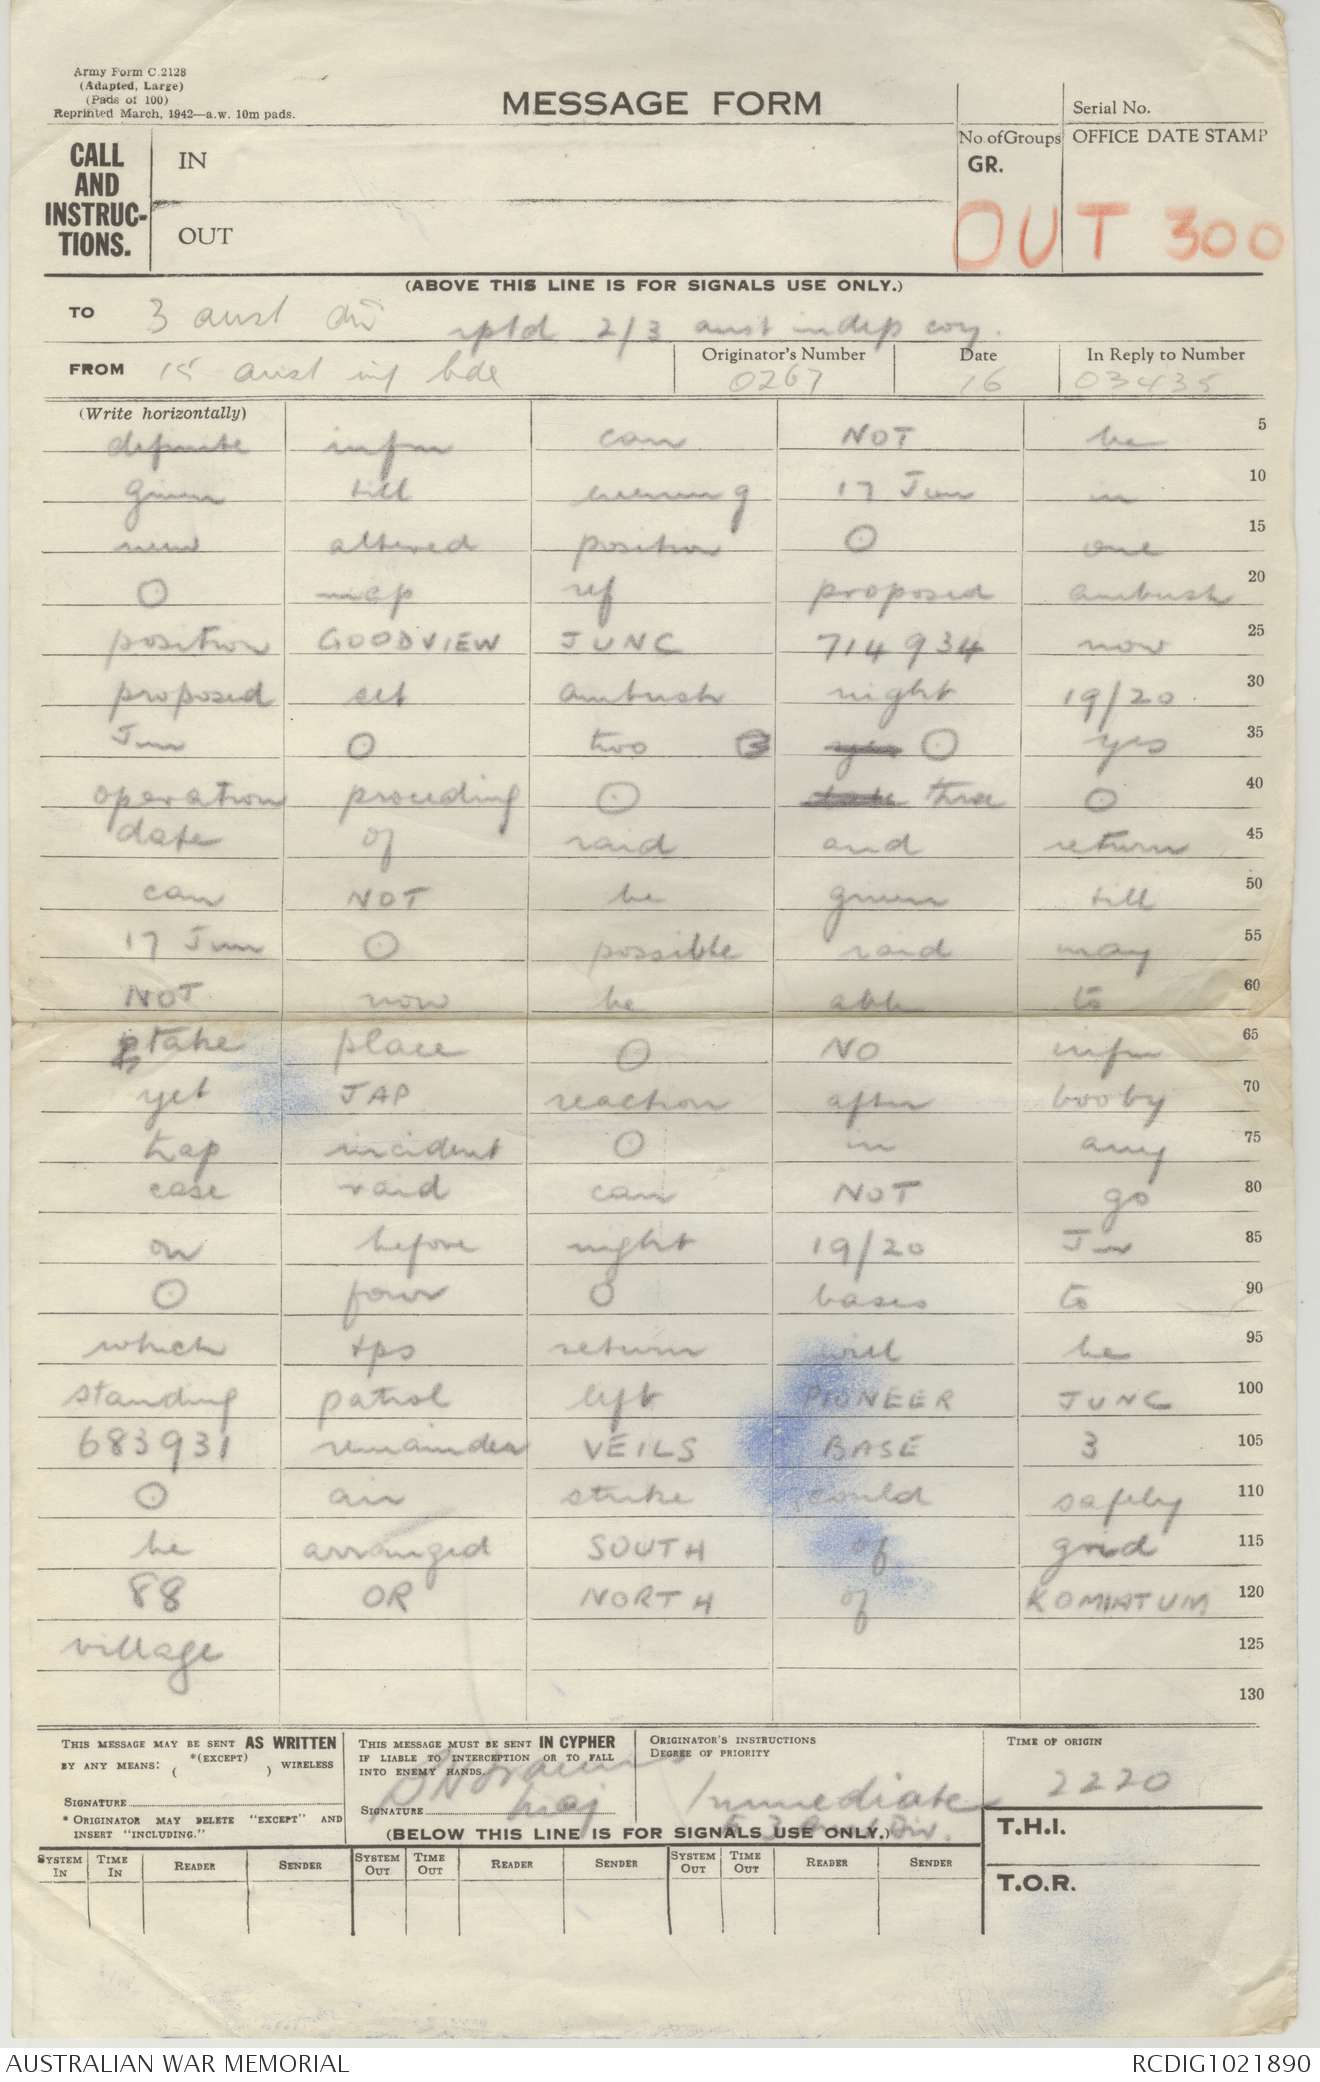 Army Form C.2128
(Adapted, Large)
(Pads of 100)
Reprinted March, 1942—a.w. 10m pads.
MESSAGE FORM
Serial No.
CALL AND INSTRUC-TIONS.
IN
No. of Groups
GR.
OFFICE DATE STAMP
OUT
OUT 300
(ABOVE THIS LINE IS FOR SIGNALS USE ONLY.)
TO 3 aust div rptd 2/3 aust indep coy.
FROM 15 aust inf bde
Originator's Number 0267
Date 16
In Reply to Number 03435
(Write horizontally)
definite infm can NOT be 5
given till evening 17 Jun in 10
new altered position O one 15
O map ref proposed ambush 20
position GOODVIEW JUNC 714934 now 25
proposed set ambush night 19/20 30
Jun O two O yes 35
operation proceding O three O 40
date of raid and return 45
can NOT be given till 50
17 Jun O possible raid may 55
NOT now be able to 60
take place O NO infm 65
yet JAP reaction after booby 70
trap incident O in any 75
case raid can NOT go 80
on before night 19/20 Jun 85
O four O bases to 90
which tps return will be 95
standing patrol left PIONEER JUNC 100
683931 remainder VEILS BASE 3 105
O air strike could safely 110
be arranged SOUTH of grid 115
88 OR NORTH of KOMIATUM 120
village 125
130
THIS MESSAGE MAY BE SENT AS WRITTEN BY ANY MEANS: *(EXCEPT) ( ) WIRELESS
SIGNATURE
* ORIGINATOR MAY DELETE "EXCEPT" AND INSERT "INCLUDING."
THIS MESSAGE MUST BE SENT IN CYPHER IF LIABLE TO INTERCEPTION OR TO FALL INTO ENEMY HANDS.
SIGNATURE Maj
ORIGINATOR'S INSTRUCTIONS
DEGREE OF PRIORITY
Immediate
to 3 Aust Div.
TIME OF ORIGIN
2220
(BELOW THIS LINE IS FOR SIGNALS USE ONLY.)
T.H.I.
SYSTEM IN TIME IN READER SENDER SYSTEM OUT TIME OUT READER SENDER SYSTEM OUT TIME OUT READER SENDER
T.O.R.
AUSTRALIAN WAR MEMORIAL
RCDIG1021890